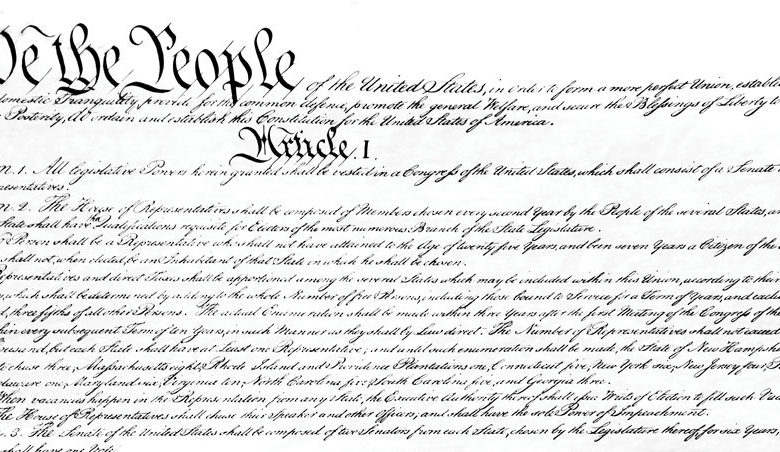 We the People of the United States, in Order to form a more perfect Union, establi
domestic Tranquility, provide for the common defence, promote the general Welfare, and secure the Blessings of Liberty to
Posterity, do ordain and establish this Constitution for the United States of America.
Article. I.
n. 1. All legislative Powers herein granted shall be vested in a Congress of the United States, which shall consist of a Senate
resentatives.
n. 2. The House of Representatives shall be composed of Members chosen every second Year by the People of the several States, an
State shall have the Qualifications requisite for Electors of the most numerous Branch of the State Legislature.
Person shall be a Representative who shall not have attained to the Age of twenty five Years, and been seven Years a Citizen of the
shall not, when elected, be an Inhabitant of that State in which he shall be chosen.
Representatives and direct Taxes shall be apportioned among the several States which may be included within this Union, according to their
which shall be determined by adding to the whole Number of free Persons, including those bound to Service for a Term of Years, and excl
d, three fifths of all other Persons. The actual Enumeration shall be made within three Years after the first Meeting of the Congress of th
hin every subsequent Term of ten Years, in such Manner as they shall by Law direct. The Number of Representatives shall not exceed
housand, but each State shall have at Least one Representative; and until such enumeration shall be made, the State of New Hampsh
to chuse three, Massachusetts eight, Rhode Island and Providence Plantations one, Connecticut five, New York six, New Jersey four,
elaware one, Maryland six, Virginia ten, North Carolina five, South Carolina five, and Georgia three.
When vacancies happen in the Representation from any State, the Executive Authority thereof shall issue Writs of Election to fill such Vac
The House of Representatives shall chuse their Speaker and other Officers; and shall have the sole Power of Impeachment.
. 3. The Senate of the United States shall be composed of two Senators from each State, chosen by the Legislature thereof, for six Years;
shall have one Vote.